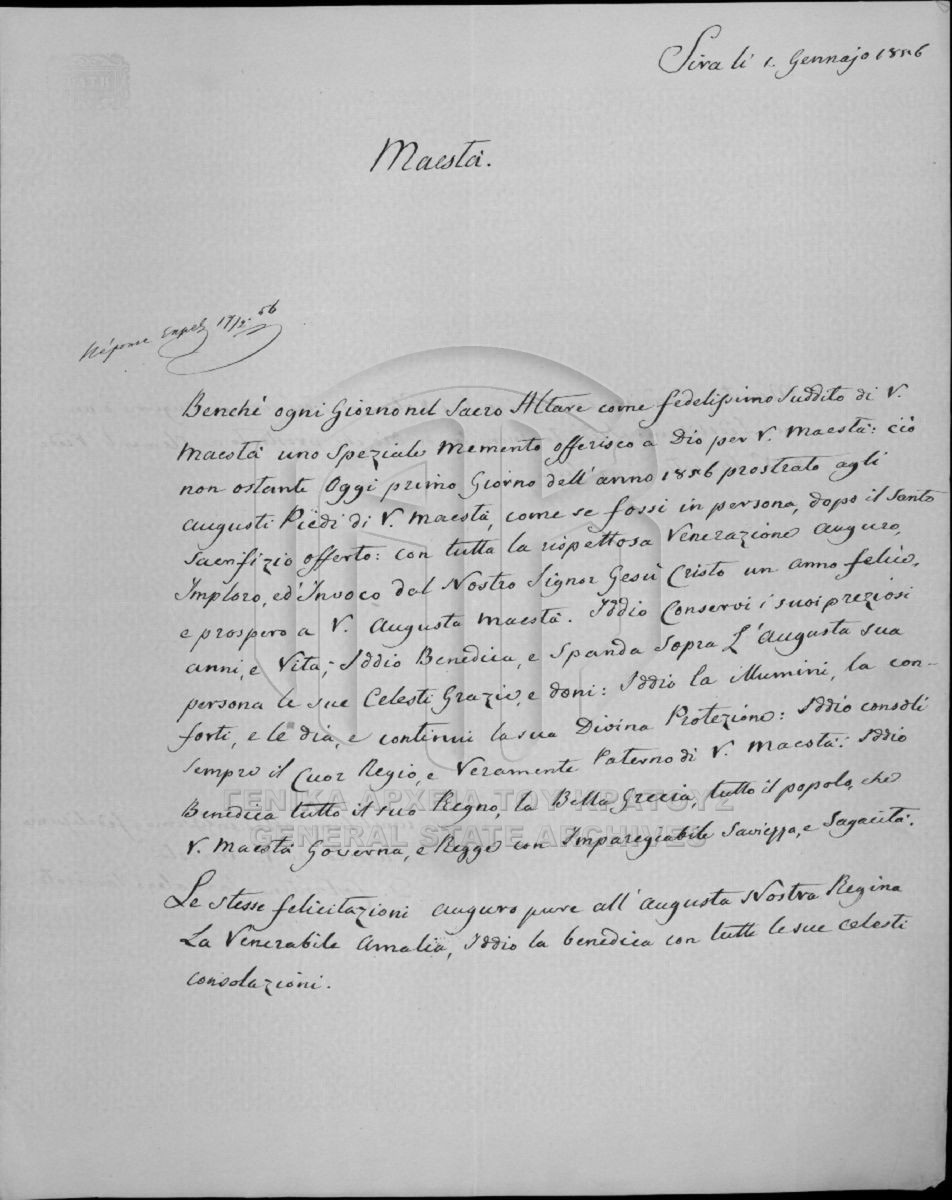 Sira li 1. Gennajo 1856
Maestà.
17/2. 56
Benchè ogni Giorno nel Sacro Altare come fedelissimo Suddito di V.
Maestà uno Speziale Memento offerisco a Dio per V. Maestà: ciò
non ostante Oggi primo Giorno dell'anno 1856 prostrato agli
augusti Piedi di V. Maestà, come se fossi in persona, dopo il Santo
Sacrifizio offerto: con tutta la rispettosa Venerazione auguro,
Imploro, ed Invoco dal Nostro Signor Gesù Cristo un anno felice,
e prospero a V. Augusta Maestà. Iddio Conservi i suoi preziosi
anni, e Vita; Iddio Benedica, e Spanda Sopra L'Augusta sua
persona le sue Celesti Grazie, e doni: Iddio la Illumini, la con-
forti, e le dia, e continui la sua Divina Protezione: Iddio consoli
sempre il Cuor Regio, e Veramente Paterno di V. Maestà: Iddio
Benedica tutto il suo Regno, la Bella Grecia, tutto il popolo, che
V. Maestà Governa, e Regge con Imparegiabile Saviezza, e Sagacità.
Le stesse felicitazioni auguro pure all'augusta Nostra Regina
La Venerabile Amalia, Iddio la benedica con tutte le sue celesti
consolazioni.
ΓΕΝΙΚΑ ΑΡΧΕΙΑ ΤΟΥ ΚΡΑΤΟΥΣ
GENERAL STATE ARCHIVES